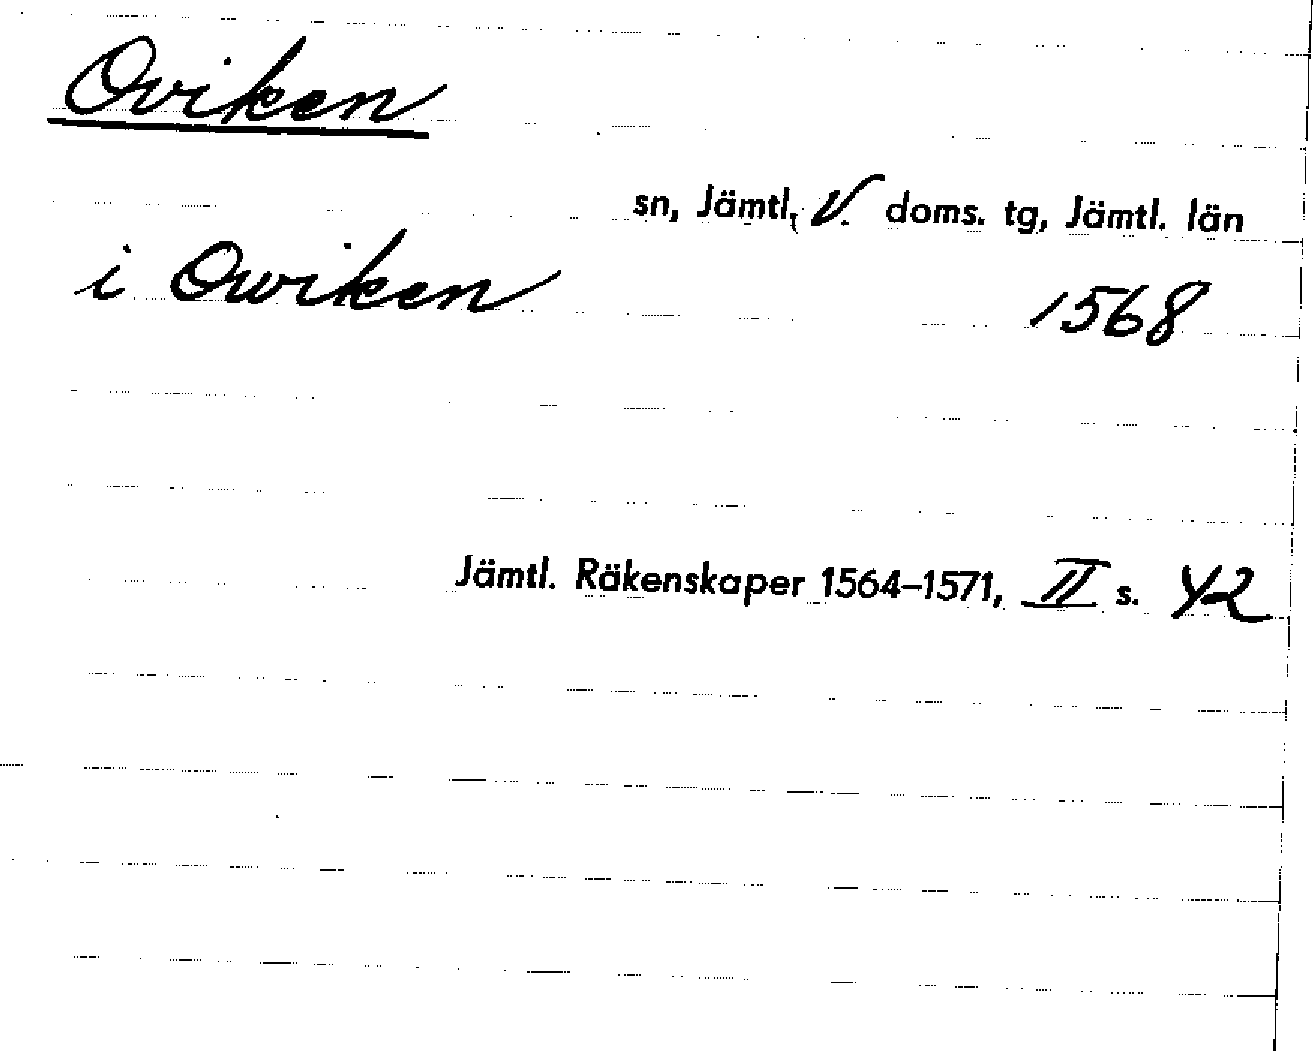 Oviken
sn, Jämtl, V. doms. tg, Jämtl. län
i Owiken 1568
Jämtl. Räkenskaper 1564–1571, II s. 42